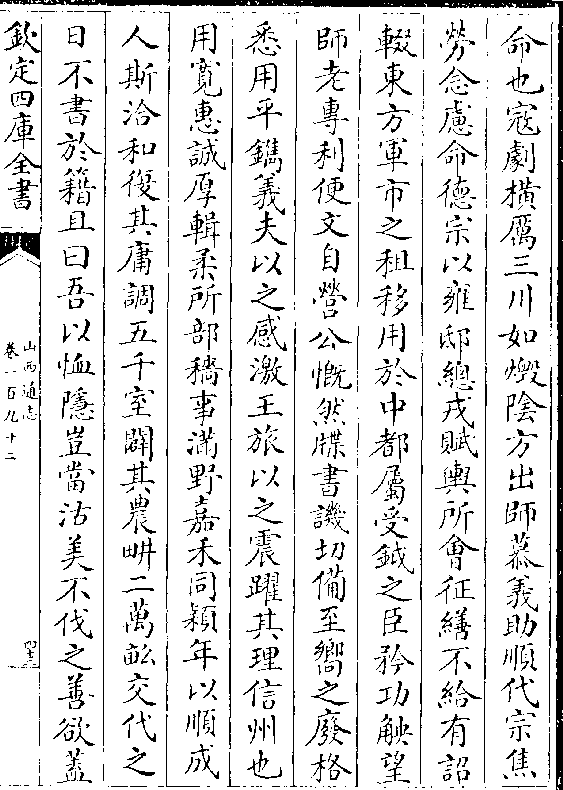 命也寇劇横厲三川如燬陰方出師慕義助順代宗焦
勞念慮命德宗以雍邸總戎賦輿所會征繕不給有詔
輟東方軍市之租移用於中都屬受鉞之臣矜功觖望
師老專利便文自營公慨然牒書譏切備至嚮之廢格
悉用平鐫義夫以之感激王旅以之震躍其理信州也
用寛惠誠厚輯柔所部穡事滿野嘉禾同穎年以順成
人斯洽和復其庸調五千室闢其農畊二萬畝交代之
日不書於籍且曰吾以恤隱豈當沽美不伐之善欲蓋
欽定四庫全書
山西通志
卷一百九十二